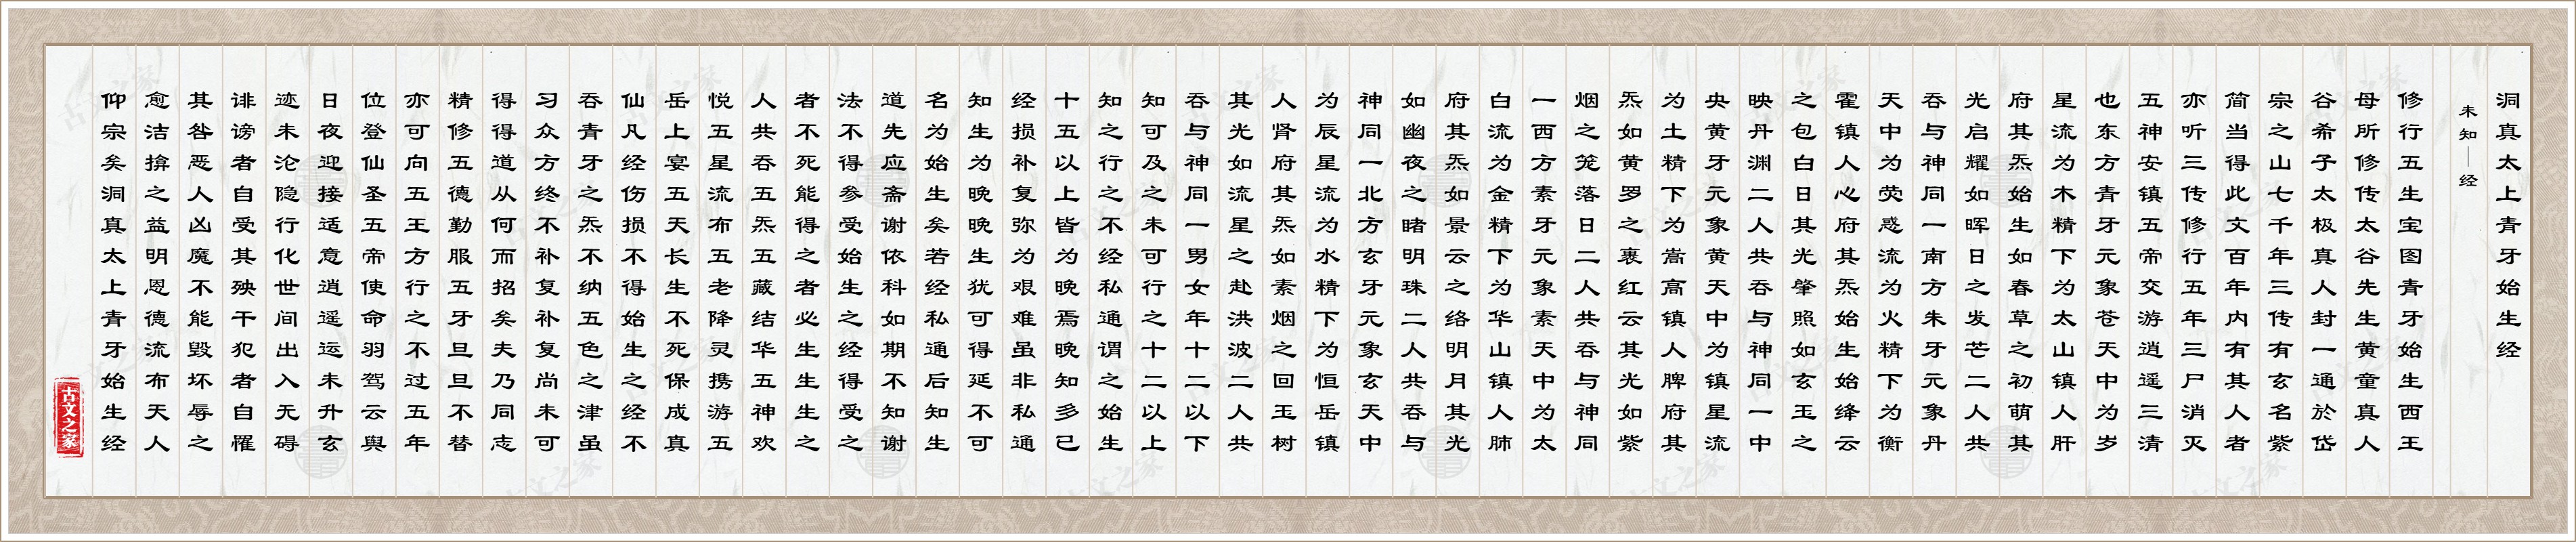 洞真太上青牙始生经
未知｜经
修行五生宝图青牙始生西王
母所修传太谷先生黄童真人
谷希子太极真人封一通於岱
宗之山七千年三传有玄名紫
简当得此文百年内有其人者
亦听三传修行五年三尸消灭
五神安镇五帝交游逍遥三清
也东方青牙元象苍天中为岁
星流为木精下为太山镇人肝
府其炁始生如春草之初萌其
光启耀如晖日之发芒二人共
吞与神同一南方朱牙元象丹
天中为荧惑流为火精下为衡
霍镇人心府其炁始生始绛云
之包白日其光肇照如玄玉之
映丹渊二人共吞与神同一中
央黄牙元象黄天中为镇星流
为土精下为嵩高镇人脾府其
炁如黄罗之裹红云其光如紫
烟之笼落日二人共吞与神同
一西方素牙元象素天中为太
白流为金精下为华山镇人肺
府其炁如景云之络明月其光
如幽夜之睹明珠二人共吞与
神同一北方玄牙元象玄天中
为辰星流为水精下为恒岳镇
人肾府其炁如素烟之回玉树
其光如流星之赴洪波二人共
吞与神同一男女年十二以下
知可及之未可行之十二以上
知之行之不经私通谓之始生
十五以上皆为晚焉晚知多已
经损补复弥为艰难虽非私通
知生为晚晚生犹可得延不可
名为始生矣若经私通后知生
道先应斋谢依科如期不知谢
法不得参受始生之经得受之
者不死能得之者必生生生之
人共吞五炁五藏结华五神欢
悦五星流布五老降灵携游五
岳上宴五天长生不死保成真
仙凡经伤损不得始生之经不
吞青牙之炁不纳五色之津虽
习众方终不补复补复尚未可
得得道从何而招矣夫乃同志
精修五德勤服五牙旦旦不替
亦可向五王方行之不过五年
位登仙圣五帝使命羽驾云舆
日夜迎接适意逍遥运未升玄
迹未沦隐行化世间出入无碍
诽谤者自受其殃干犯者自罹
其咎恶人凶魔不能毁坏辱之
愈洁揜之益明恩德流布天人
仰宗矣洞真太上青牙始生经
古文之家